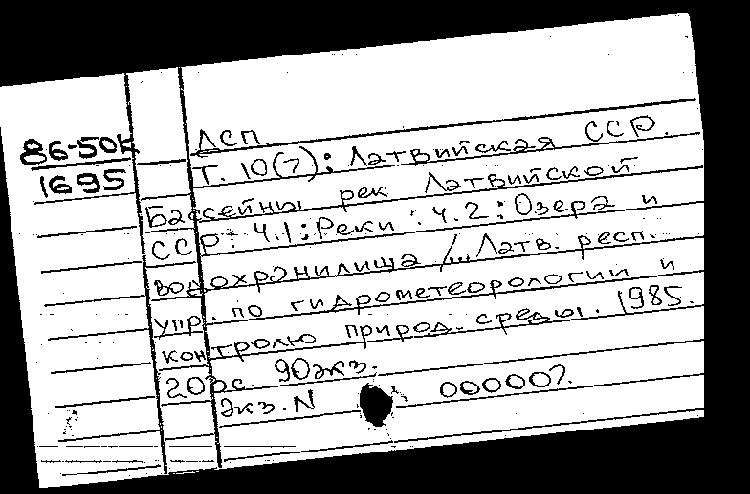 86-50К
1695
ДСП
Т. 10(7): Латвийская ССР.
Бассейны рек Латвийской
ССР: Ч.1: Реки: Ч.2: Озера и
водохранилища /... Латв. респ.
упр. по гидрометеорологии и
контролю природ. среды. 1985.
203с. 90экз.
Экз. N 000007.